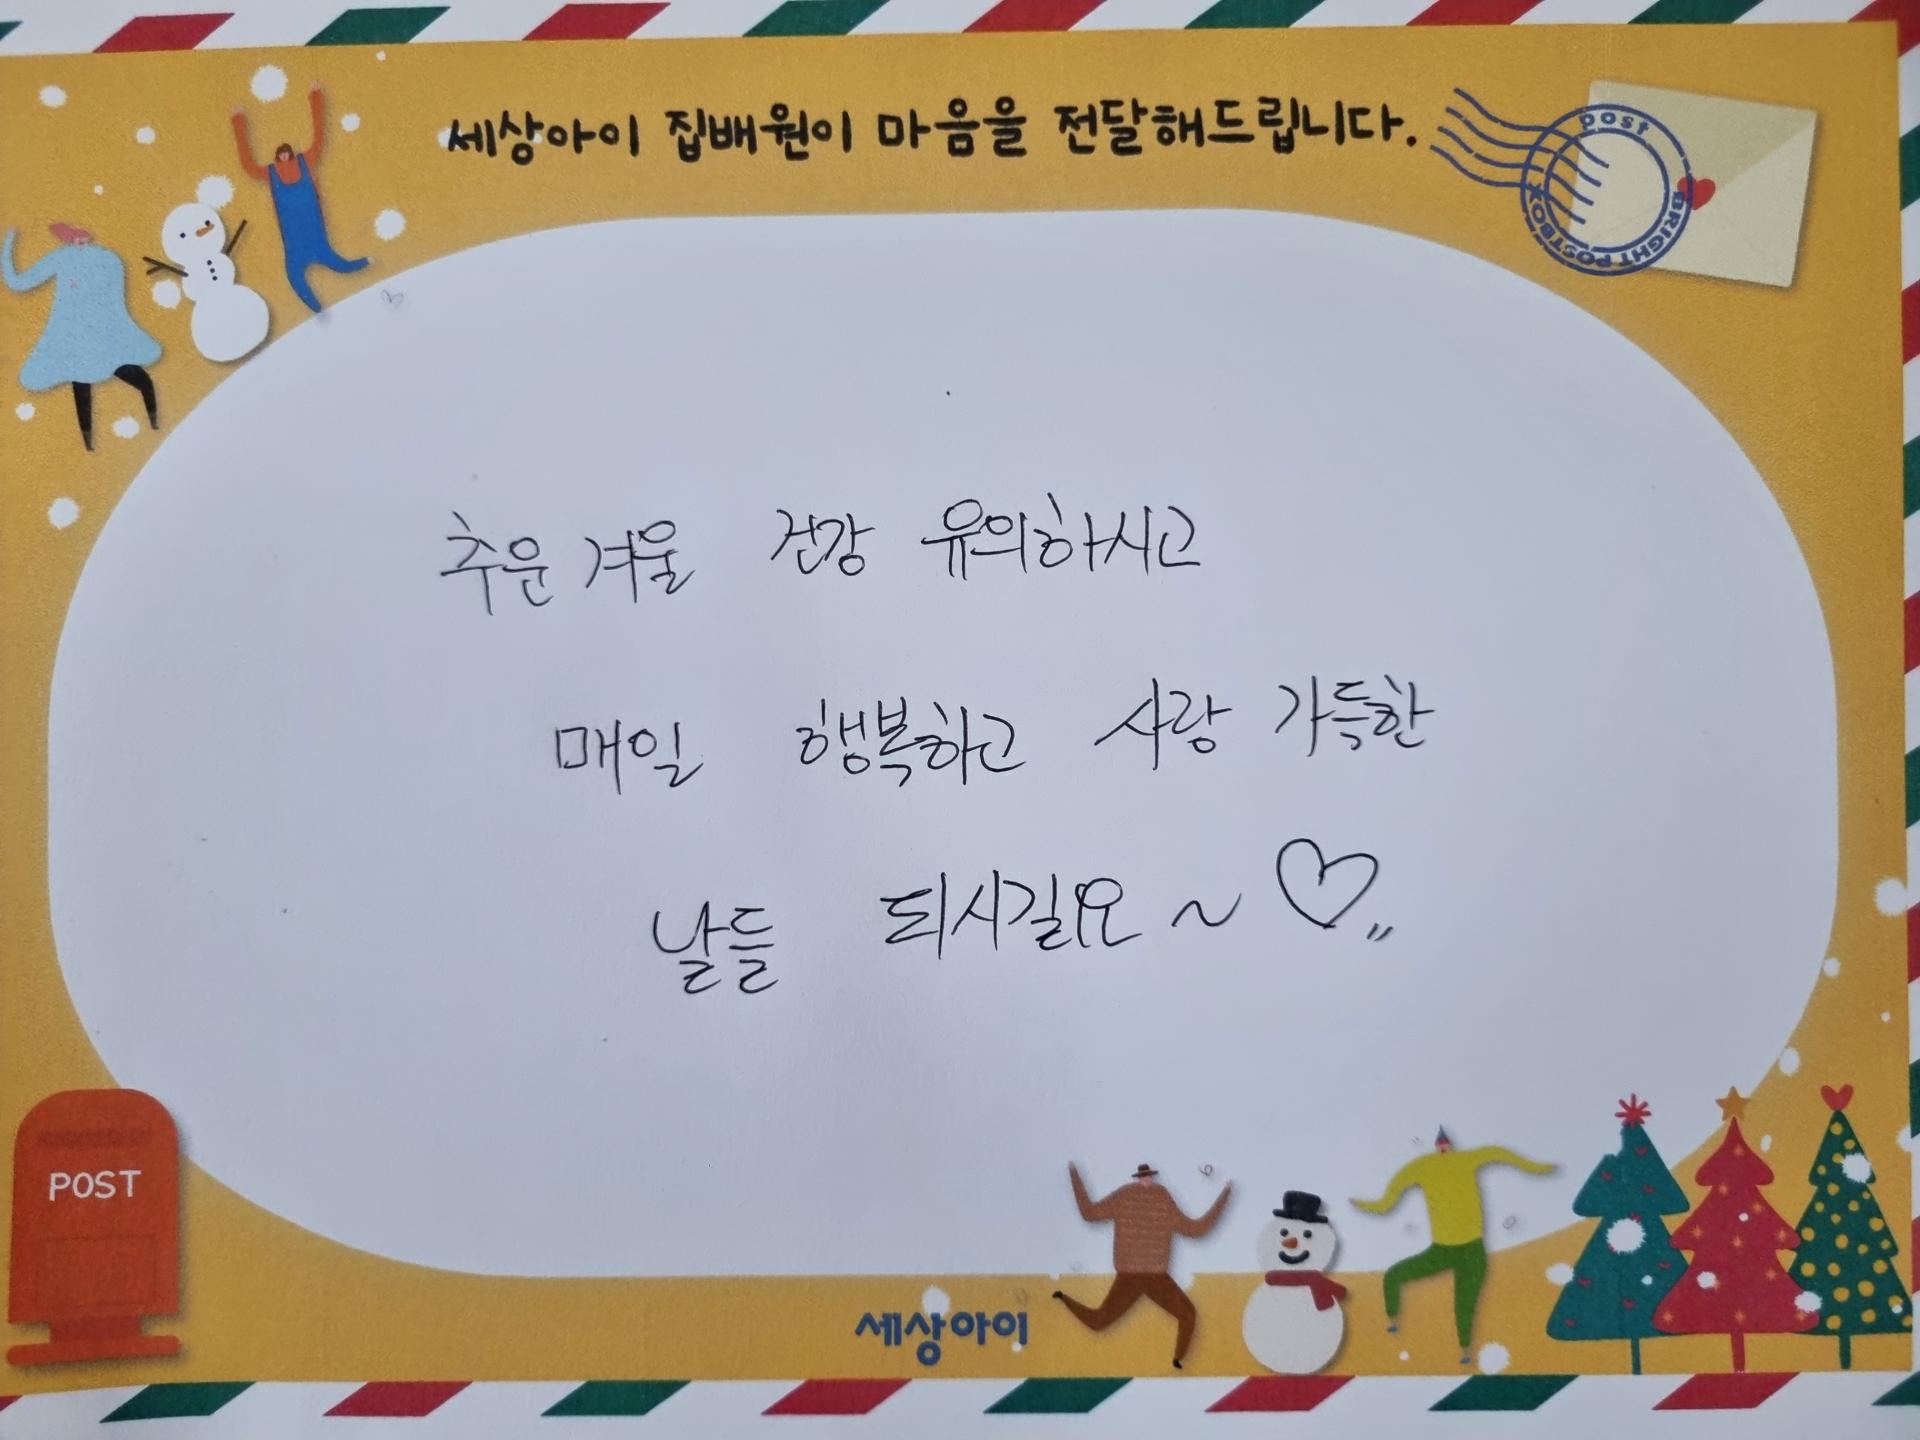 세상아이 집배원이 마음을 전달해드립니다.
post
BRIGHT POSTBOX
추운 겨울 건강 유의하시고
매일 행복하고 사랑 가득한
날들 되시길요~♡
POST
세상아이